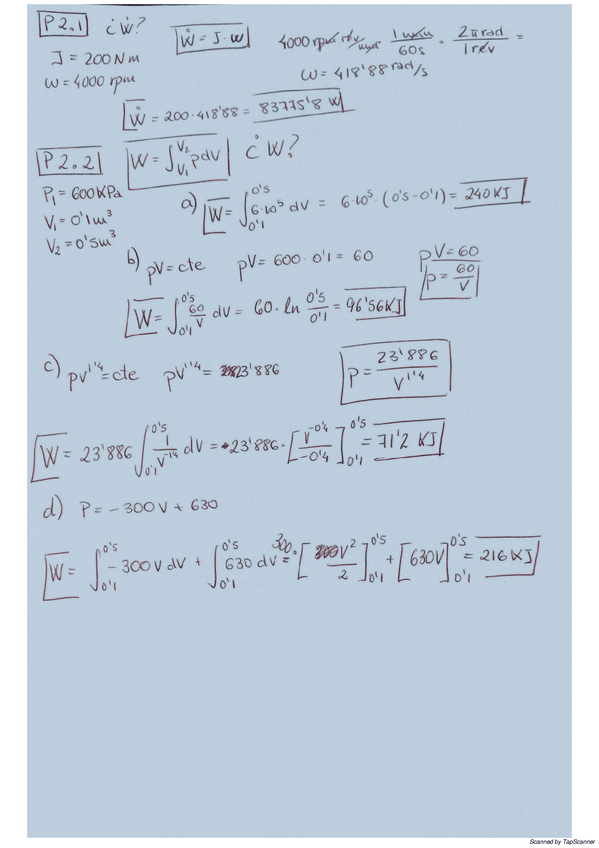 P2.1 ¿Ẇ? Ẇ = J·w 4000 rpm rev/min · 1 min/60s · 2π rad/1 rev =
J = 200 Nm
w = 4000 rpm w = 418'88 rad/s
Ẇ = 200·418'88 = 83775'8 W
P2.2 W = ∫_{V1}^{V2} pdV ¿W?
P1 = 600 KPa
V1 = 0'1 m³
V2 = 0'5 m³
a) W = ∫_{0'1}^{0'5} 6·10⁵ dV = 6·10⁵·(0'5-0'1) = 240 KJ
b) pV = cte pV = 600·0'1 = 60 pV = 60
p = 60/V
W = ∫_{0'1}^{0'5} 60/V dV = 60·ln 0'5/0'1 = 96'56 KJ
c) pV^{1'4} = cte pV^{1'4} = 23'886 p = 23'886/V^{1'4}
W = 23'886 ∫_{0'1}^{0'5} 1/V^{-1'4} dV = 23'886·[V^{-0'4}/-0'4]_{0'1}^{0'5} = 71'2 KJ
d) P = -300V + 630
W = ∫_{0'1}^{0'5} -300V dV + ∫_{0'1}^{0'5} 630 dV = 300·[V²/2]_{0'1}^{0'5} + [630V]_{0'1}^{0'5} = 216 KJ
Scanned by TapScanner